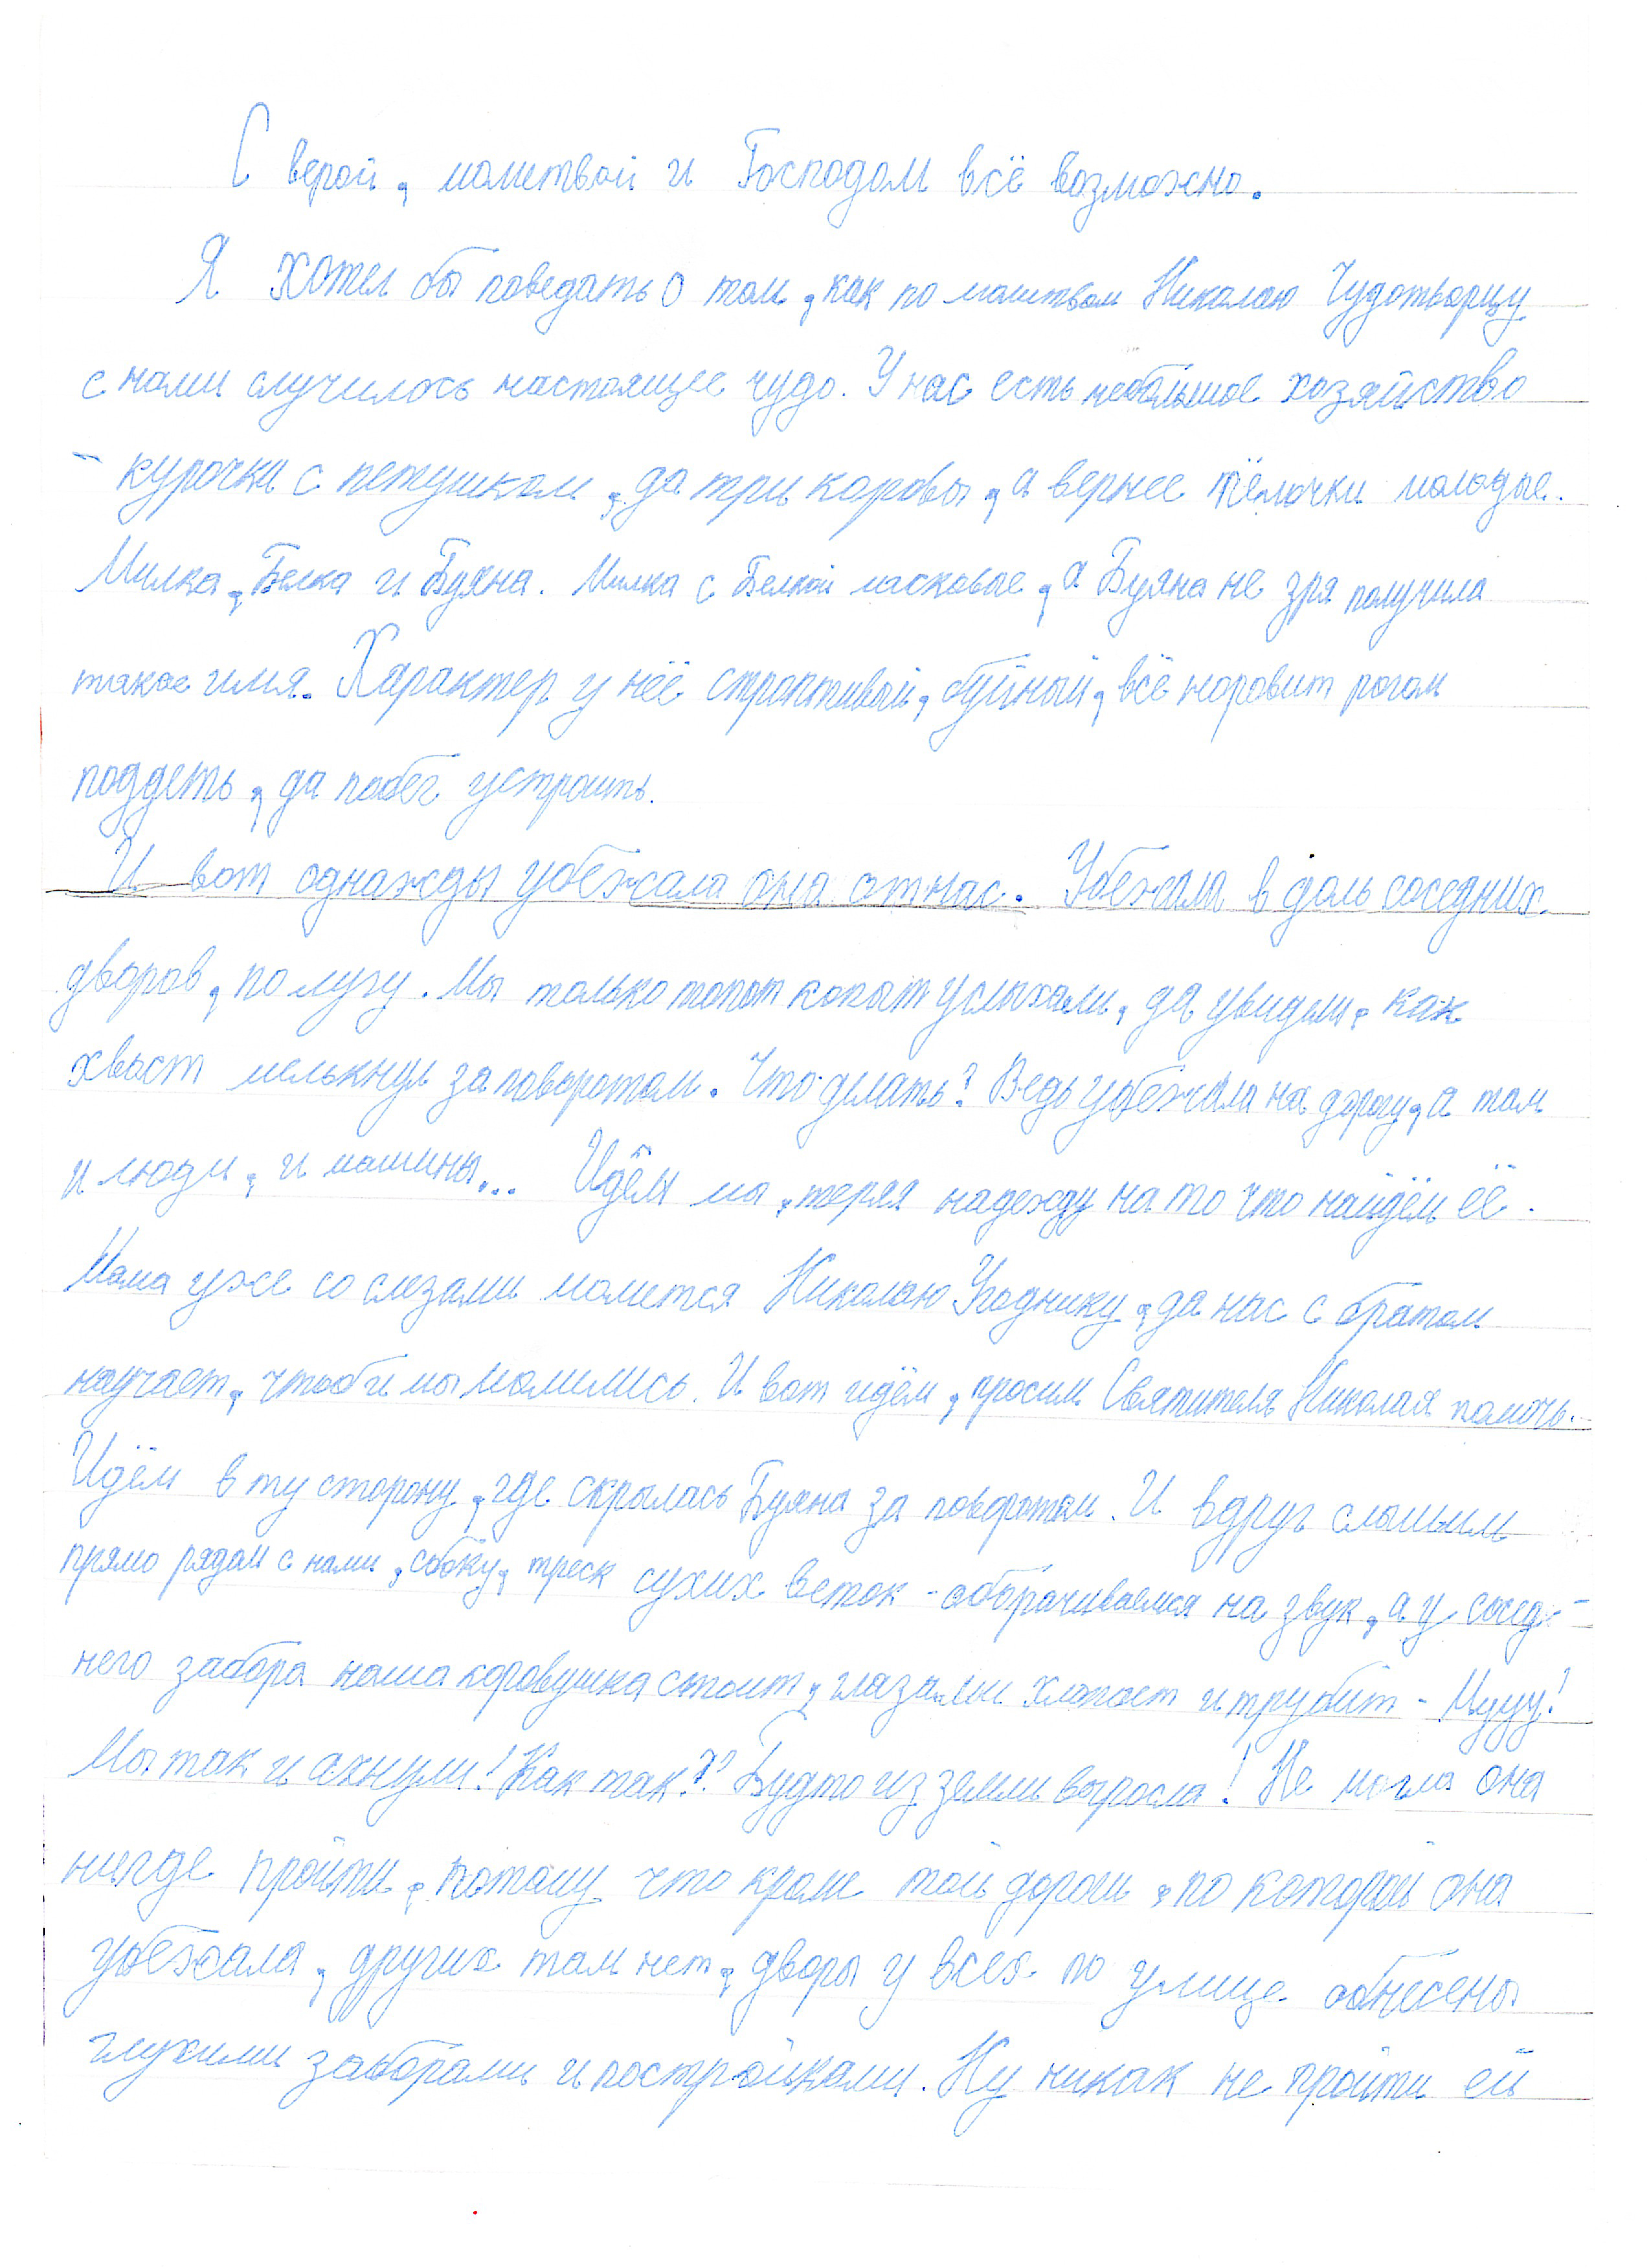 С верой, молитвой и Господом всё возможно.
Я хотел бы поведать о том, как по молитвам Николаю Чудотворцу
с нами случилось настоящее чудо. У нас есть небольшое хозяйство
- курочки с петушком, да три коровы, а вернее тёлочки молодые.
Милка, Белка и Буяна. Милка с Белкой ласковые, а Буяна не зря получила
такое имя. Характер у неё строптивый, буйный, всё норовит рогом
поддеть, да побег устроить.
И вот однажды убежала она от нас. Убежала в доль соседних
дворов, по лугу. Мы только топот копыт услыхали, да увидели, как
хвост мелькнул за поворотом. Что делать? Ведь убежала на дорогу, а там
и люди, и машины... Идём мы, теряя надежду на то что найдём её.
Мама уже со слезами молится Николаю Угоднику, да нас с братом
научает, чтоб и мы молились. И вот идём, просим Святителя Николая помочь.
Идём в ту сторону, где скрылась Буяна за поворотом. И вдруг слышим
прямо рядом с нами, сбоку, треск сухих веток - оборачиваемся на звук, а у сосед-
него забора наша коровушка стоит, глазами хлопает и трубит - Мууу!
Мы так и ахнули! Как так?! Будто из земли выросла! Не могла она
нигде пройти, потому что кроме той дороги, по которой она
убежала, других там нет, дворы у всех по улице обнесены
глухими заборами и постройками. Ну никак не пройти ей